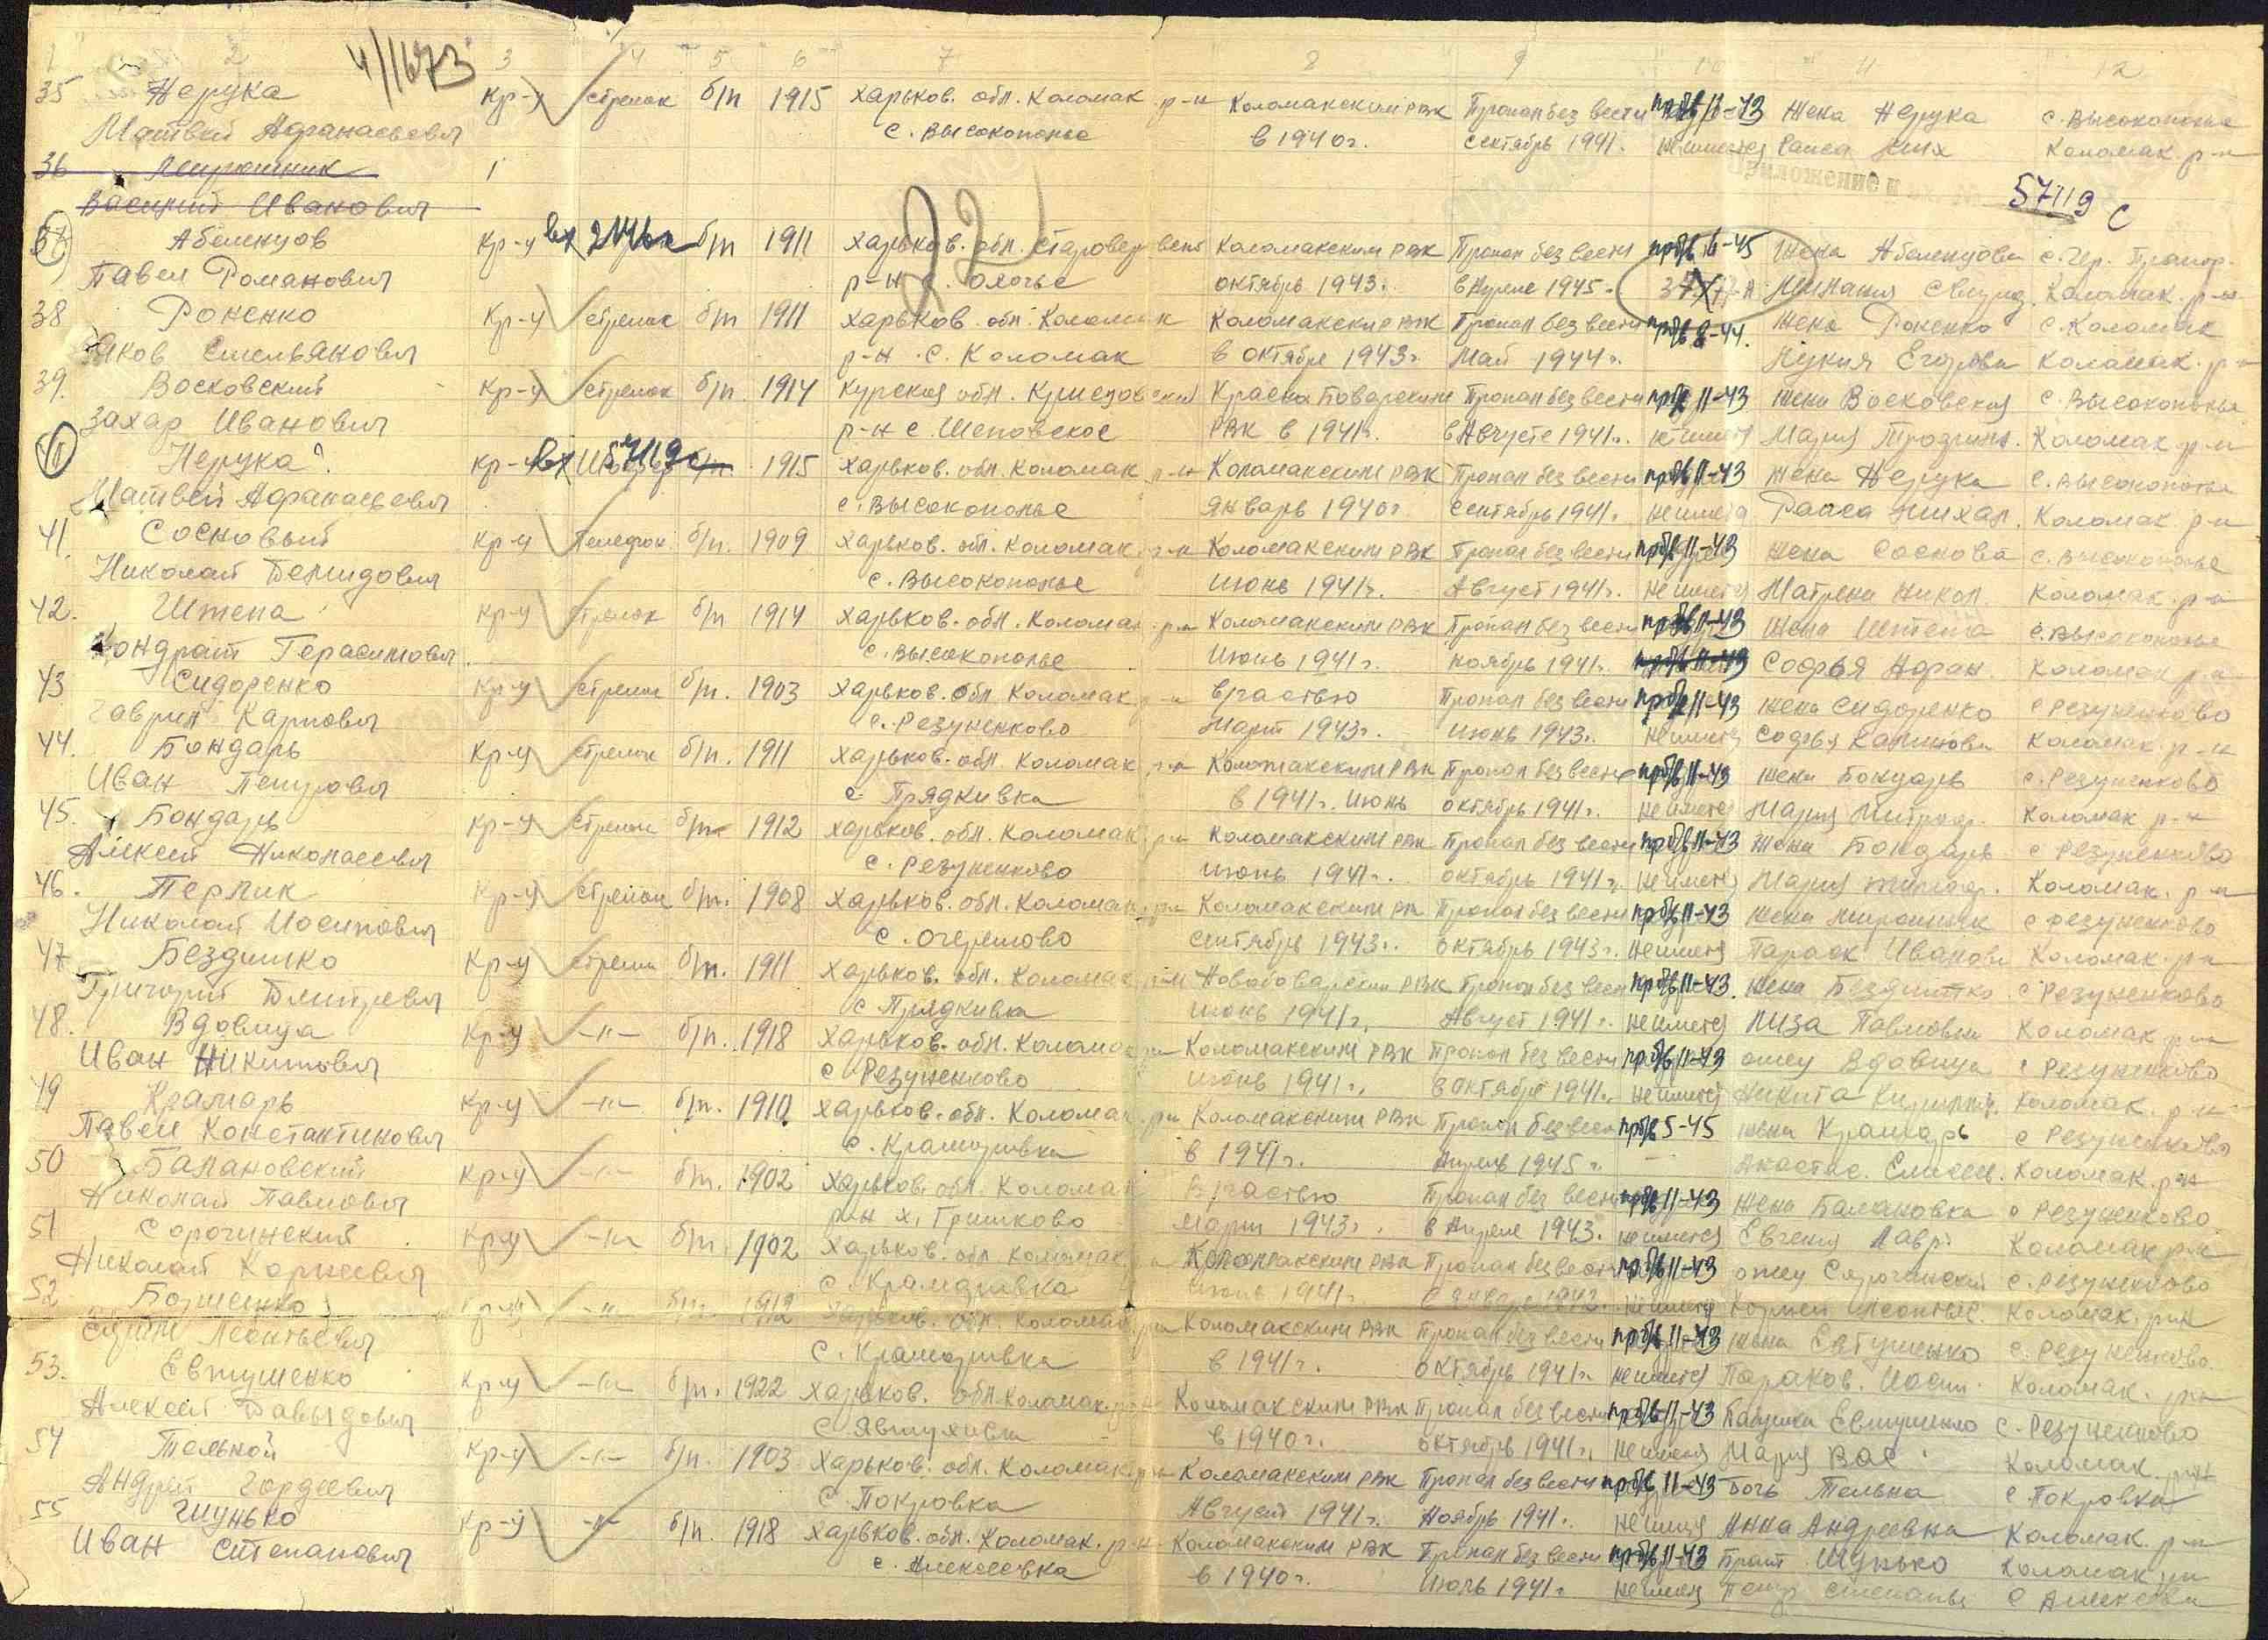 1 2 3 4 5 6 7 8 9 10 11 12
4/11673
35 Нерука кр-ц стрелок б/п 1915 Харьков. обл. Коломак р-н Коломакским РВК Пропал без вести пр б/в 11-43 жена Нерука с. Высокополье
Матвей Афанасьевич с. Высокополье в 1940 г. сентябрь 1941 г. не имеется Раиса Мих Коломак. р-н
36 Мирошник
Приложение к
57119 с
Василий Иванович
22
37 Абеленцов кр-ц б/п 1911 Харьков. обл. Старовер Коломакским РВК Пропал без вести пр б/в 6-45 жена Абеленцова
Павел Романович р-н с. октябрь 1943 г. в Апреле 1945 г. Коломак. р-н
38 Роненко кр-ц стрелок б/п 1911 Харьков. обл. Коломак Коломакским РВК Пропал без вести пр б/в 8-44. жена Роненко с. Коломак
Яков Емельянович р-н с. Коломак в октябре 1943 г. Май 1944 г. Егоровна Коломак. р-н
39. Восковский кр-ц стрелок б/п. 1914 Курская обл. РВК Пропал без вести пр б/в 11-43 жена Восковская с. Высокополье
Захар Иванович р-н с. РВК в 1941 г. в Августе 1941 г. не имеется Мария Коломак р-н
40 Нерука кр-ц 57119 с 1915 Харьков. обл. Коломак р-н Коломакским РВК Пропал без вести пр б/в 11-43 жена Нерука с. Высокополье
Матвей Афанасьевич с. Высокополье январь 1940 г. сентябрь 1941 г. не имеется Раиса Михал. Коломак р-н
41. Сосновый кр-ц Телефон б/п. 1909 Харьков. обл. Коломак. р-н Коломакским РВК Пропал без вести пр б/в 11-43 жена Соснова с. Высокополье
Николай Демидович с. Высокополье июнь 1941 г. Август 1941 г. не имеется Матрена Никол Коломак р-н
42. Штепа кр-ц стрелок б/п 1914 Харьков. обл. Коломак р-н Коломакским РВК Пропал без вести пр б/в 11-43 жена Штепа с. Высокополье
Кондрат Герасимович с. Высокополье июнь 1941 г. ноябрь 1941 г. пр б/в 11-43 Софья Афан Коломак р-н
43 Сидоренко кр-ц стрелок б/п. 1903 Харьков. обл. Коломак р-н в/частью Пропал без вести пр б/в 11-43 жена Сидоренко с Резуненково
Гаврил Карпович с. Резуненково Март 1943 г. июнь 1943 г. не имеется Софья Коломак. р-н
44. Бондарь кр-ц стрелок б/п. 1911 Харьков. обл. Коломак р-н Коломакским РВК Пропал без вести пр б/в 11-43 жена Бондарь с. Резуненково
Иван Петрович с Прядкивка в 1941 г. июнь октябрь 1941 г. не имеется Мария Митроф. Коломак р-н
45. Бондарь кр-ц стрелок б/п 1912 Харьков. обл. Коломак р-н Коломакским РВК Пропал без вести пр б/в 11-43 жена Бондарь с Резуненково
Алексей Николаевич с. Резуненково июнь 1941 г. октябрь 1941 г. не имеется Мария Коломак. р-н
46. Перлик кр-ц стрелок б/п. 1908 Харьков. обл. Коломак. р-н Коломакским РВК Пропал без вести пр б/в 11-43 жена Мирошник с Резуненково
Николай Иосипович с. сентябрь 1943 г. октябрь 1943 г. не имеется Параск Иванов Коломак. р-н
47 Бездитко кр-ц стрелок б/п. 1911 Харьков. обл. Коломак р-н РВК Пропал без вести пр б/в 11-43. жена Бездитко с Резуненково
Григорий Дмитриевич с Прядкивка июнь 1941 г. Август 1941 г. не имеется Лиза Павловна Коломак р-н
48. Вдовица кр-ц -"- б/п. 1918 Харьков. обл. Коломак р-н Коломакским РВК Пропал без вести пр б/в 11-43 отец Вдовица с Резуненково
Иван Никитович с Резуненково июнь 1941 г. в октябре 1941 г. не имеется Никита Коломак. р-н
49 Крамарь кр-ц -"- б/п. 1910 Харьков. обл. Коломак. р-н Коломакским РВК Пропал без вести пр б/в 5-45 жена Крамарь с Резуненково
Павел Константинович с. Крамаривка в 1941 г. Апрель 1945 г. Анастас. Елисеев. Коломак. р-н
50 Балановский кр-ц -"- б/п. 1902 Харьков. обл. Коломак в/частью Пропал без вести пр б/в 11-43 жена Балановка с Резуненково
Николай Павлович р-н х. Гришково Март 1943 г. в Апреле 1943. не имеется Евгения Лавр. Коломак р-н
51 Сорочинский кр-ц -"- б/п. 1902 Харьков. обл. Коломак Коломакским РВК Пропал без вести пр б/в 11-43 отец Сорочинский с. Резуненково
Николай Корнеевич с. Крамаривка июнь 1941 г. в январе 1942 г. не имеется Корней Леонтьев. Коломак. р-н
52 кр-ц -"- б/п. 1912 Харьков. обл. Коломак. р-н Коломакским РВК Пропал без вести пр б/в 11-43 жена Евтушенко с. Резуненково
Леонтьевич с. Крамаривка в 1941 г. октябрь 1941 г. не имеется Параков. Иосип. Коломак. р-н
53. Евтушенко кр-ц -"- б/п. 1922 Харьков. обл. Коломак. р-н Коломакским РВК Пропал без вести пр б/в 11-43 Бабушка Евтушенко с. Резуненково
Алексей Давыдович с. Явтухивка в 1940 г. октябрь 1941 г. не имеется Мария Вас Коломак р-н
54 Тельной кр-ц -"- б/п. 1903 Харьков. обл. Коломак. р-н Коломакским РВК Пропал без вести пр б/в 11-43 Дочь Тельна с Покровка
Андрей Гордеевич с. Покровка Август 1941 г. Ноябрь 1941 г. не имеется Анна Андреевна Коломак. р-н
55 Шунько кр-ц -"- б/п. 1918 Харьков. обл. Коломак. р-н. Коломакским РВК Пропал без вести пр б/в 11-43 Брат Шунько Коломак р-н
Иван Степанович с. Алексеевка в 1940 г. июль 1941 г. не имеется Петр Степанов с Алексеевка